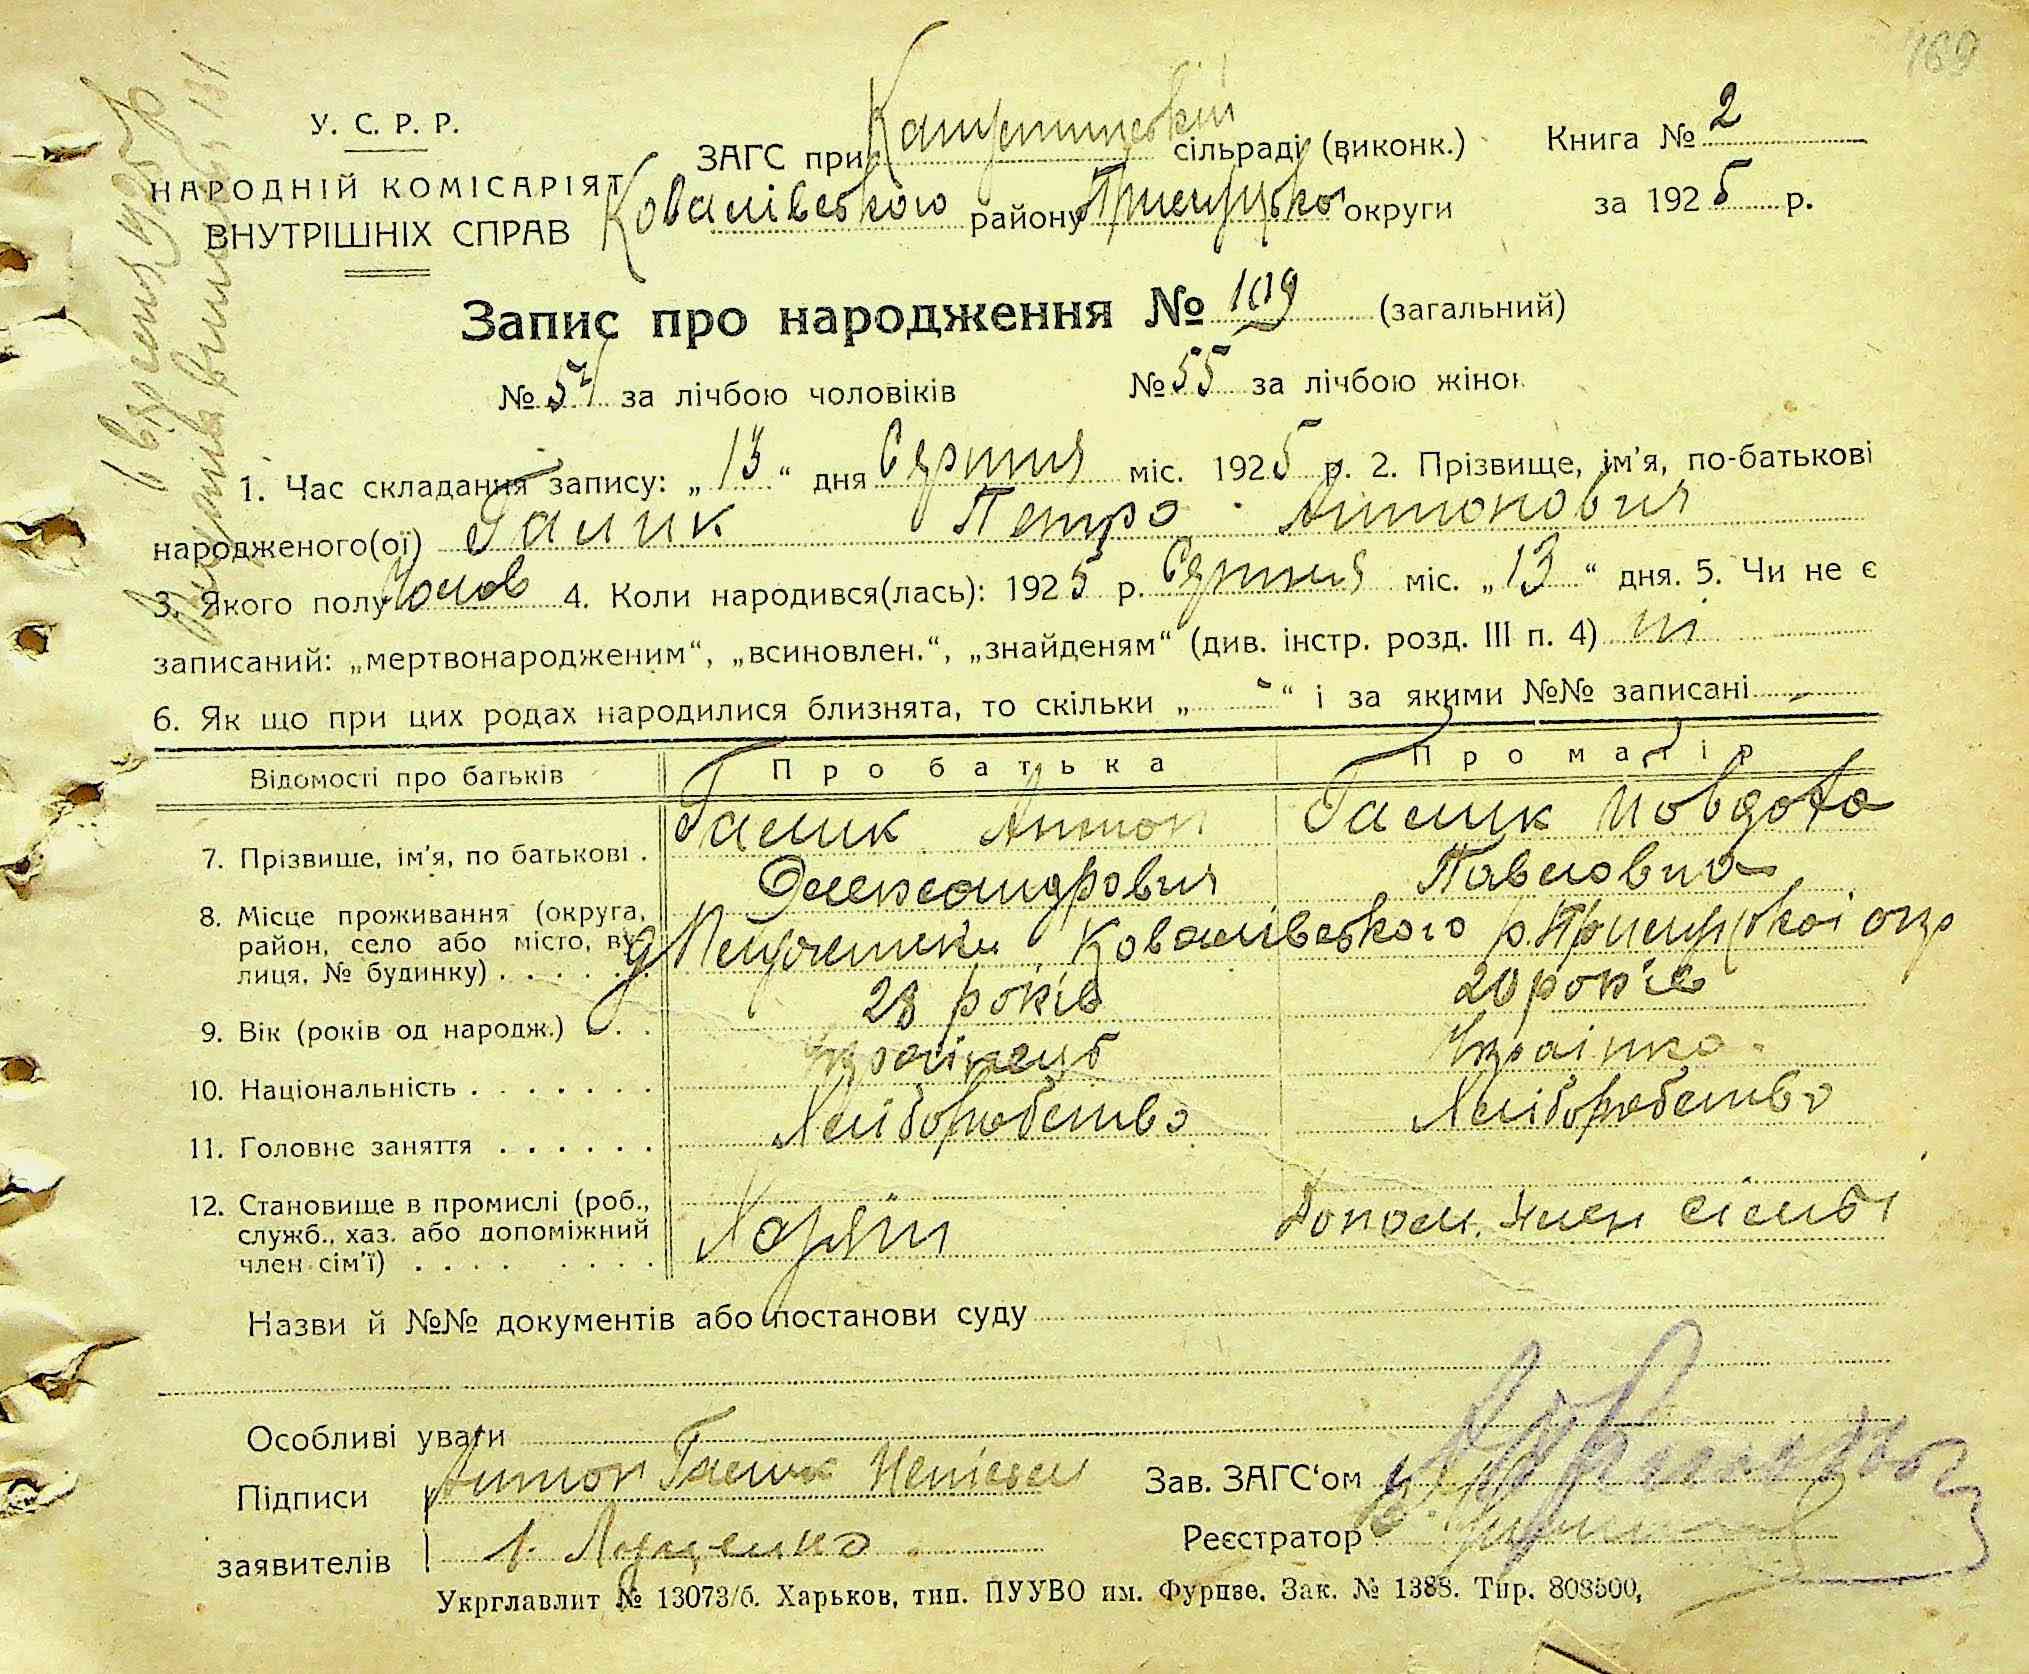 169
У. С. Р. Р.
НАРОДНІЙ КОМІСАРІЯТ
ВНУТРІШНІХ СПРАВ
ЗАГС при сільраді (виконк.)
Ковалівського району Прилуцької округи
Книга № 2
за 1925 р.
Запис про народження № 109 (загальний)
№ 54 за лічбою чоловіків № 55 за лічбою жінок
1. Час складання запису: „13“ дня Серпня міс. 1925 р. 2. Прізвище, ім'я, по-батькові
народженого(ої) Галик Петро Антонович
3. Якого полу Чолов 4. Коли народився(лась): 1925 р. Серпня міс. „13“ дня. 5. Чи не є
записаний: „мертвонародженим“, „всиновлен.“, „знайденям“ (див. інстр. розд. III п. 4) ні
6. Як що при цих родах народилися близнята, то скільки „ - “ і за якими №№ записані -
Відомості про батьків Про батька Про матір
7. Прізвище, ім'я, по батькові . Галик Антон Галик Мовдоха
Олександрович Павловна
8. Місце проживання (округа,
район, село або місто, ву-
лиця, № будинку) . . . . . Ковалівського р. Прилуцької окр
9. Вік (років од народж.) . . . 28 років 20 років
10. Національність . . . . . . . Українець Українка.
11. Головне заняття . . . . . . Хліборобство Хліборобство
12. Становище в промислі (роб.,
служб., хаз. або допоміжний
член сім'ї) . . . . . . . . Хазяїн Допом. член сімьї
Назви й №№ документів або постанови суду
Особливі уваги
Підписи Антон Галик
заявителів Луценко
Зав. ЗАГС'ом
Реєстратор
Укрглавлит № 13073/б. Харьков, тип. ПУУВО им. Фрунзе. Зак. № 1388. Тир. 808500,